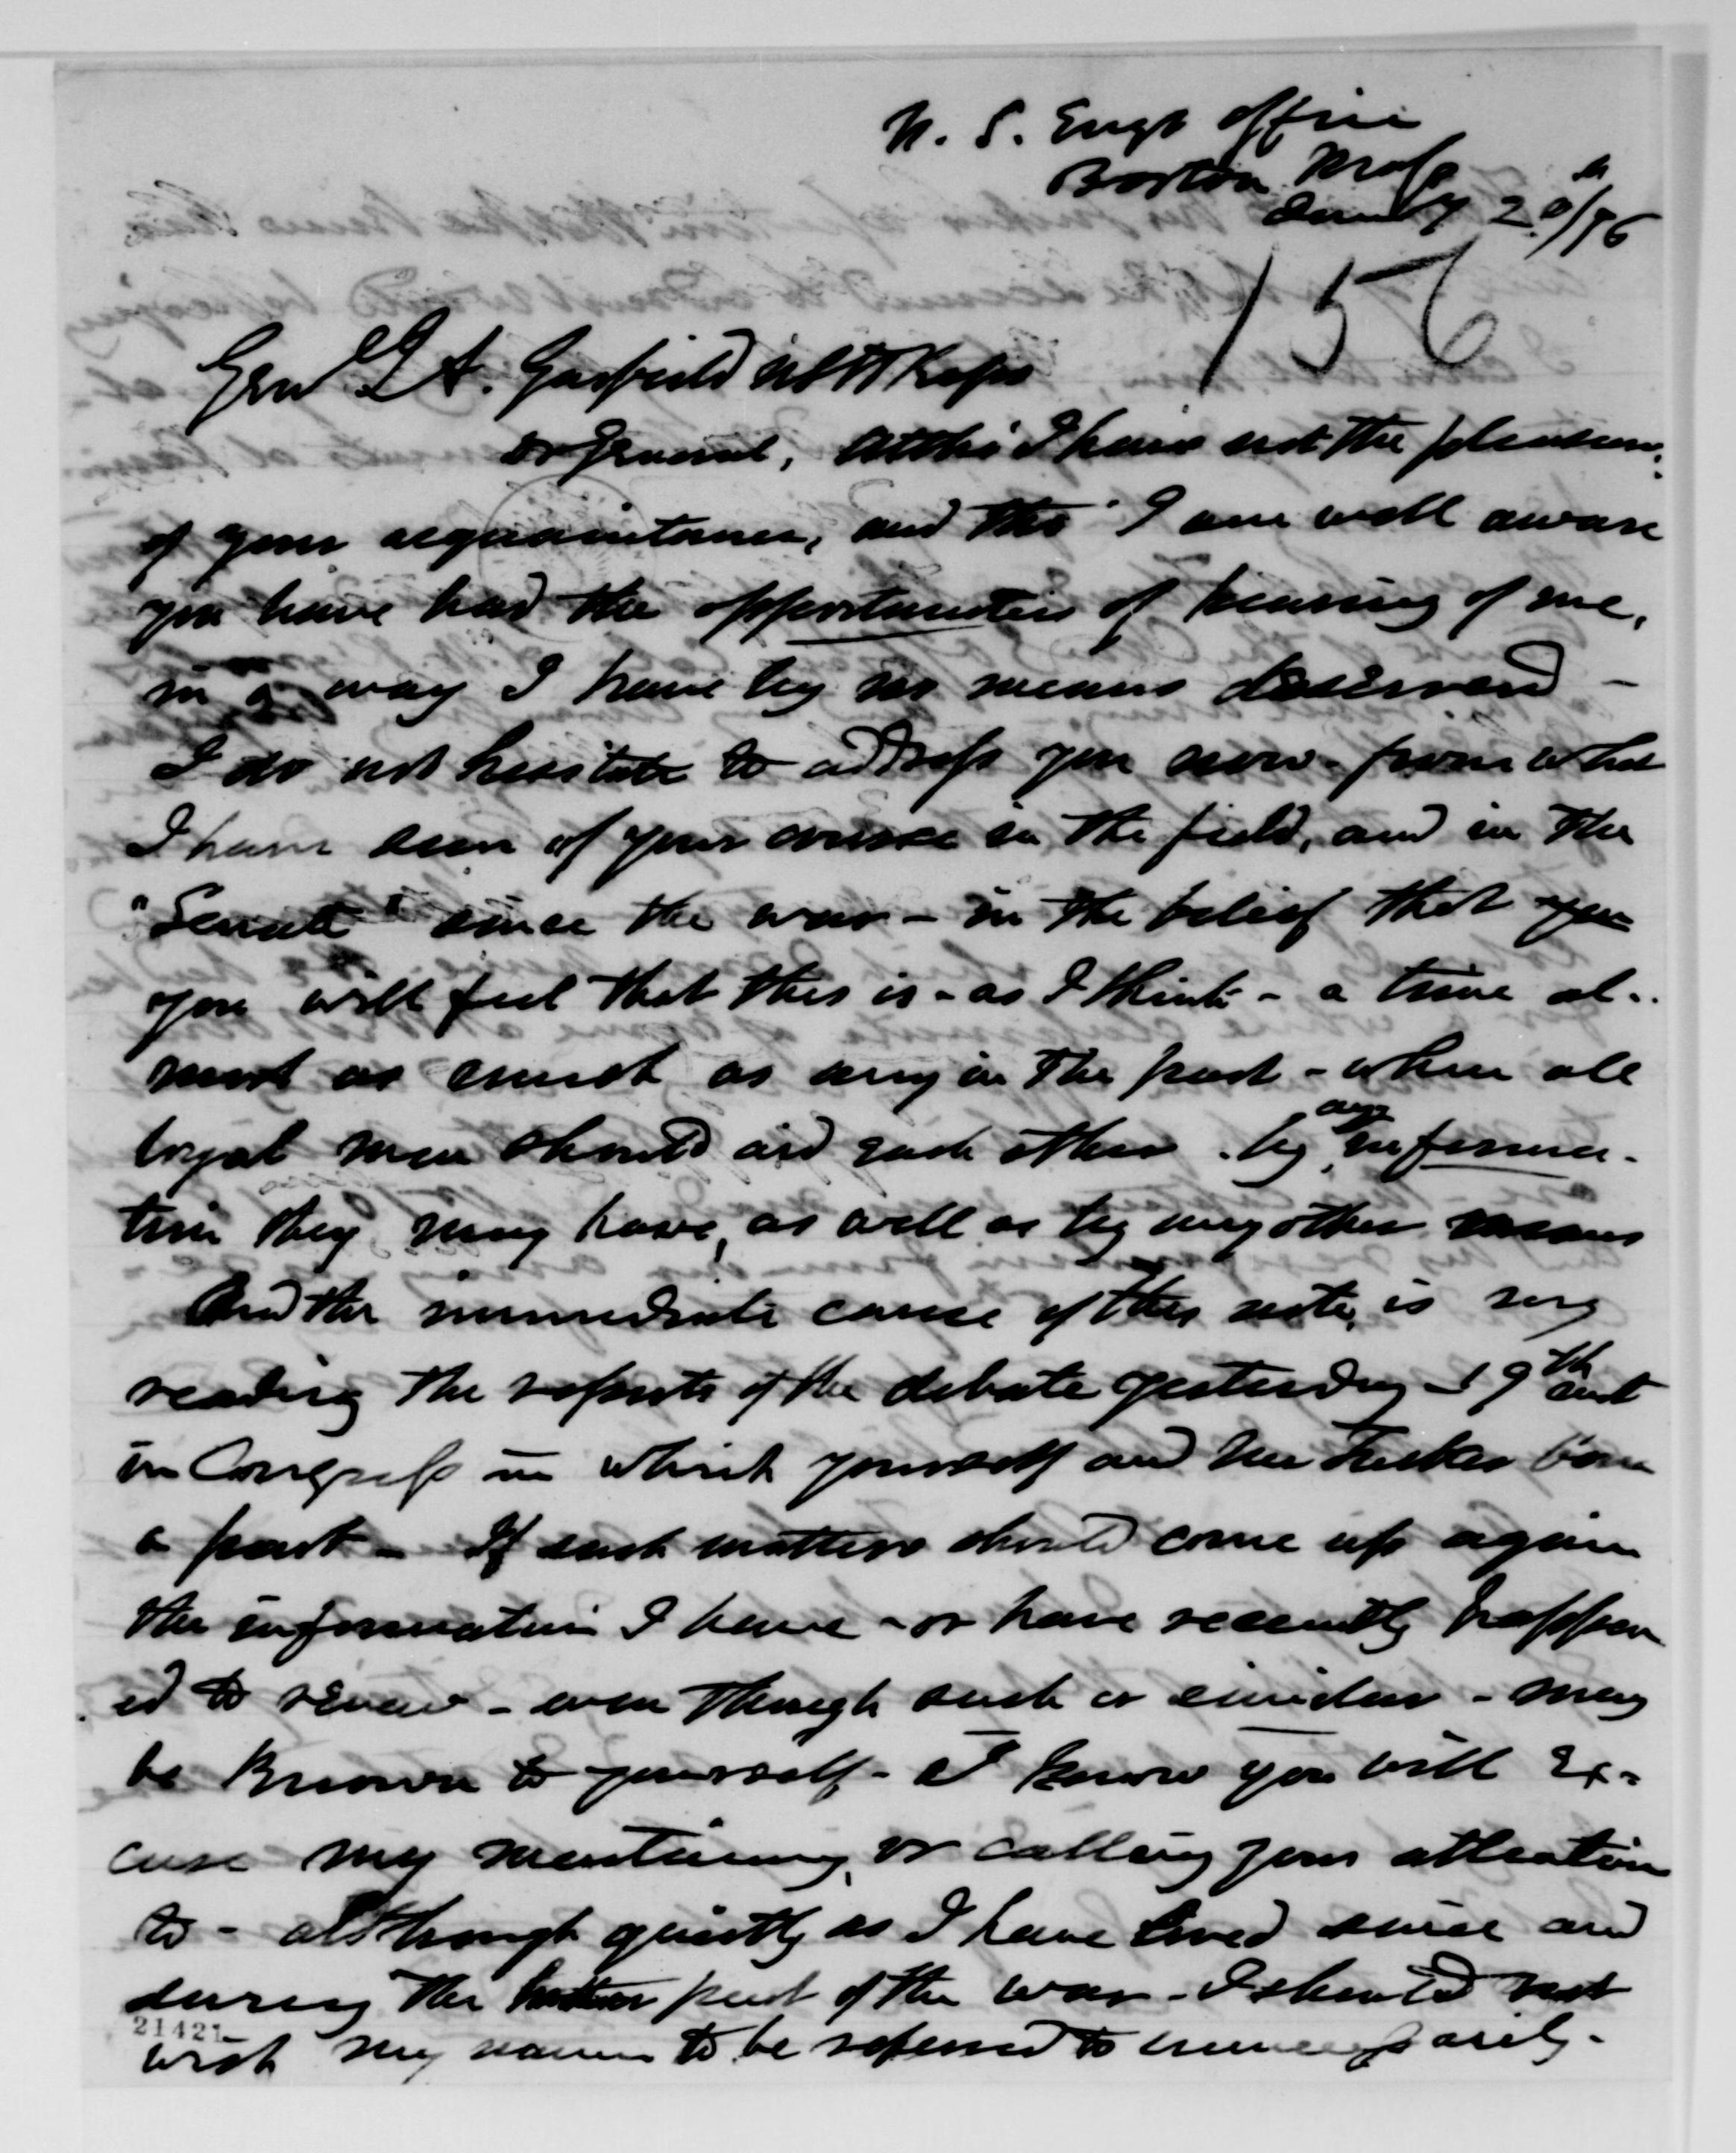 U. S. Engr Office
Boston Mass
Jany 20th/76
156
Genl J A. Garfield Reps
Dr General, Altho' I have not the pleasure
of your acquaintance, and tho' I am well aware
you have had the opportunities of hearing of me,
in a way I have by no means deserved –
I do not hesitate to address you now – from what
I have seen of your course in the field, and in the
"Senate" since the war – in the belief that you
you will feel that this is – as I think – a time al-
most as much as any in the past – when all
loyal men should aid each other by any informa-
tion they may have, as well as by any other means
And the immediate cause of this note, is my
reading the reports of the debate yesterday 19th inst
in Congress in which yourself and Mr Tucker bore
a part – If such matters should come up again
the information I have – or have recently happen
ed to review – even though such or similar – may
be known to yourself – I know you will ex-
cuse my mentioning, or calling your attention
to – although quietly as I have lived since and
during the latter part of the war – I should not
wish my name to be referred to unnecessarily.
21421